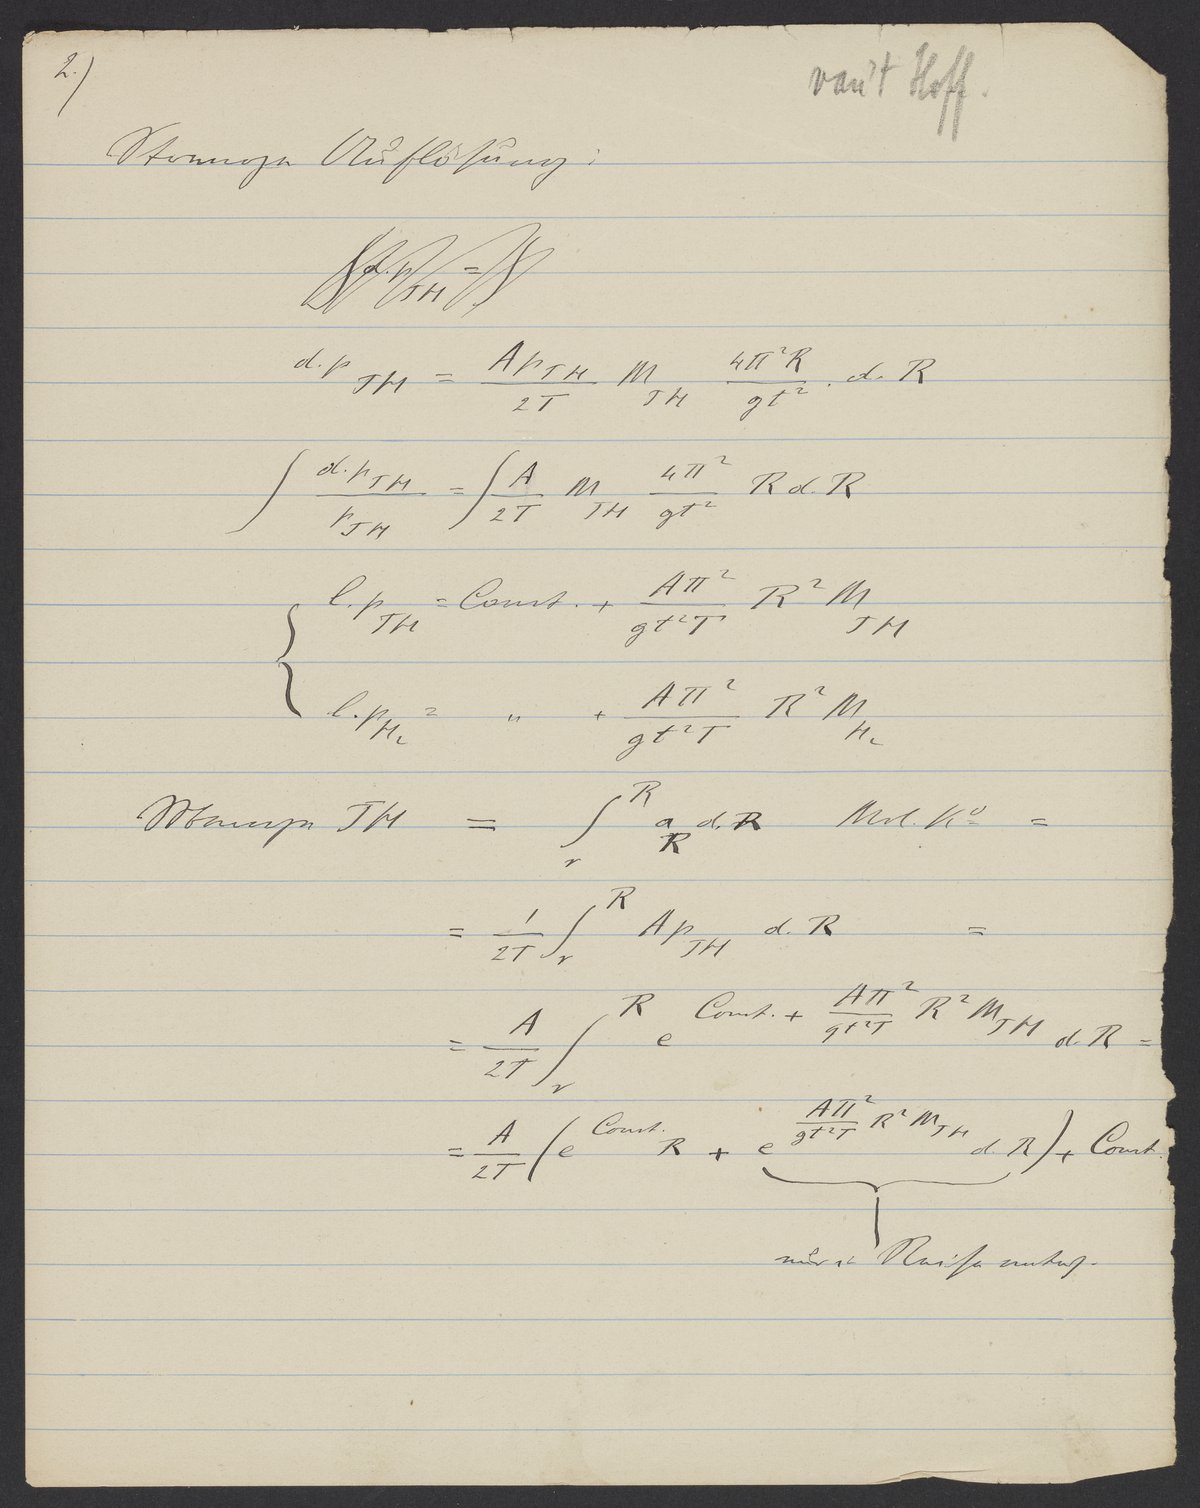 2.)
van't Hoff.
Strenge Auflösung:
∫ d.p_JH = ∫
d.p_JH = (A p_JH / 2T) M_JH (4π²R / gt²) . d. R
∫ d.p_JH / p_JH = ∫ (A / 2T) M_JH (4π² / gt²) R d. R
l. p_JH = Const. + (Aπ² / gt²T) R² M_JH
l. p_H₂ = " + (Aπ² / gt²T) R² M_H₂
Menge JH = ∫_r^R a_R d. R Mol. K⁰ =
= (1 / 2T) ∫_r^R A p_JH d. R =
= (A / 2T) ∫_r^R e^(Const. + (Aπ² / gt²T) R² M_JH) d. R =
= (A / 2T) (e^Const. R + e^((Aπ² / gt²T) R² M_JH) d. R) + Const.
nur i. Reihe